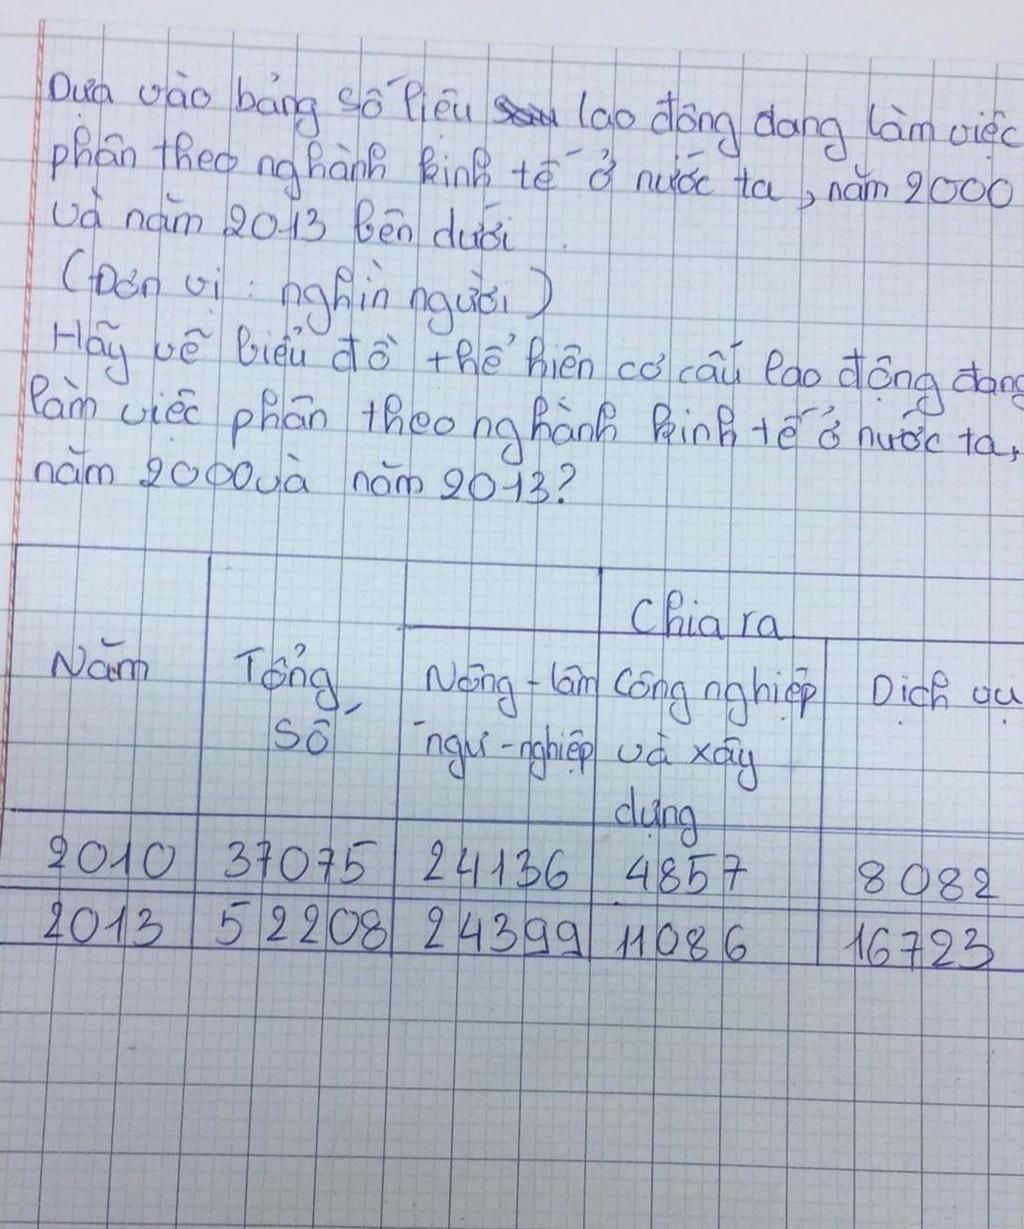 Dựa vào bảng số liệu lao động đang làm việc
phân theo nghành kinh tế ở nước ta, năm 2000
và năm 2013 bên dưới
(Đơn vị: nghìn người)
Hãy vẽ biểu đồ thể hiện cơ cấu lao động đang
làm việc phân theo nghành kinh tế ở nước ta,
năm 2000 và năm 2013?
Chia ra
Năm Tổng Nông-lâm Công nghiệp Dịch vụ
số ngư-nghiệp và xây
dựng
2010 37075 24136 4857 8082
2013 52208 24399 11086 16723